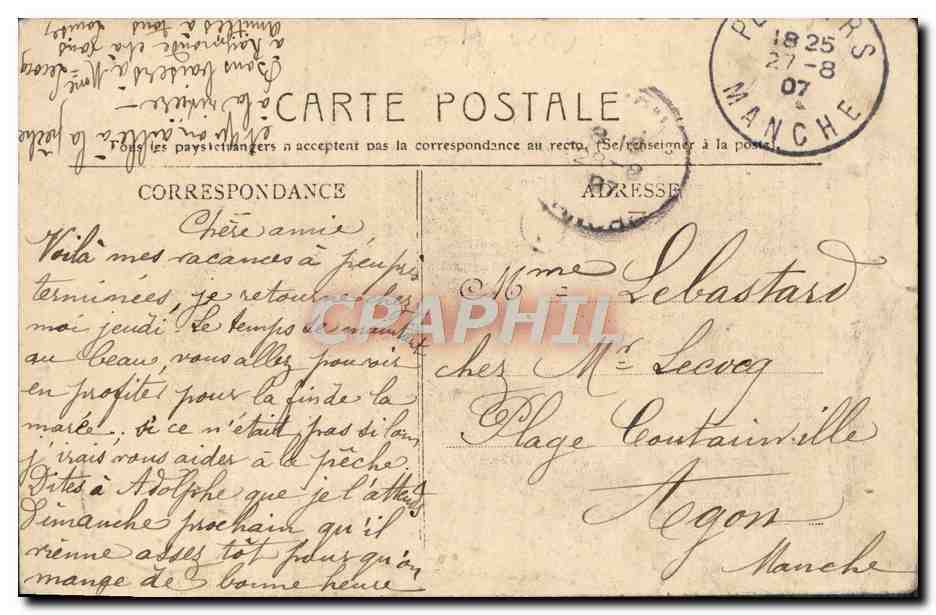 CARTE POSTALE
Tous les pays étrangers n'acceptent pas la correspondance au recto. (Se renseigner à la poste).
CORRESPONDANCE
Chère amie
Voilà mes vacances à peu près
terminées, je retourne chez
moi jeudi. Le temps se maintient
au beau, vous allez pouvoir
en profiter pour la fin de la
marée. si ce n'était pas si loin
j'irais vous aider à la pêche.
Dites à Adolphe que je l'attends
Dimanche prochain qu'il
vienne assez tôt pour qu'on
mange de bonne heure
et qu'on aille à la pêche
à la rivière —
Bons baisers à Mme Lecocq
à Raymonde et à tous
amitiés à tous
Louise
ADRESSE
Mme Lebastard
chez Mr Lecocq
Plage Coutainville
Agon
Manche
18 25
27-8
07
MANCHE
CPAPHIL